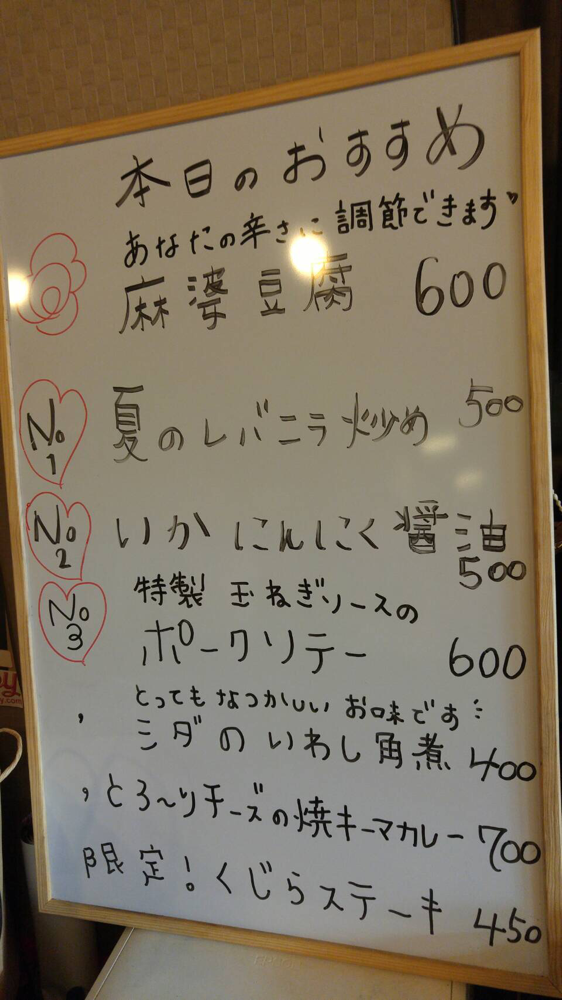 本日のおすすめ
あなたの辛さに調節できます
麻婆豆腐 600
No1 夏のレバニラ炒め 500
No2 いか にんにく醤油
500
No3 特製 玉ねぎソースの
ポークソテー 600
とってもなつかしい お味です
ミダのいわし角煮 400
とろ〜りチーズの焼キーマカレー 700
限定!くじらステーキ 450